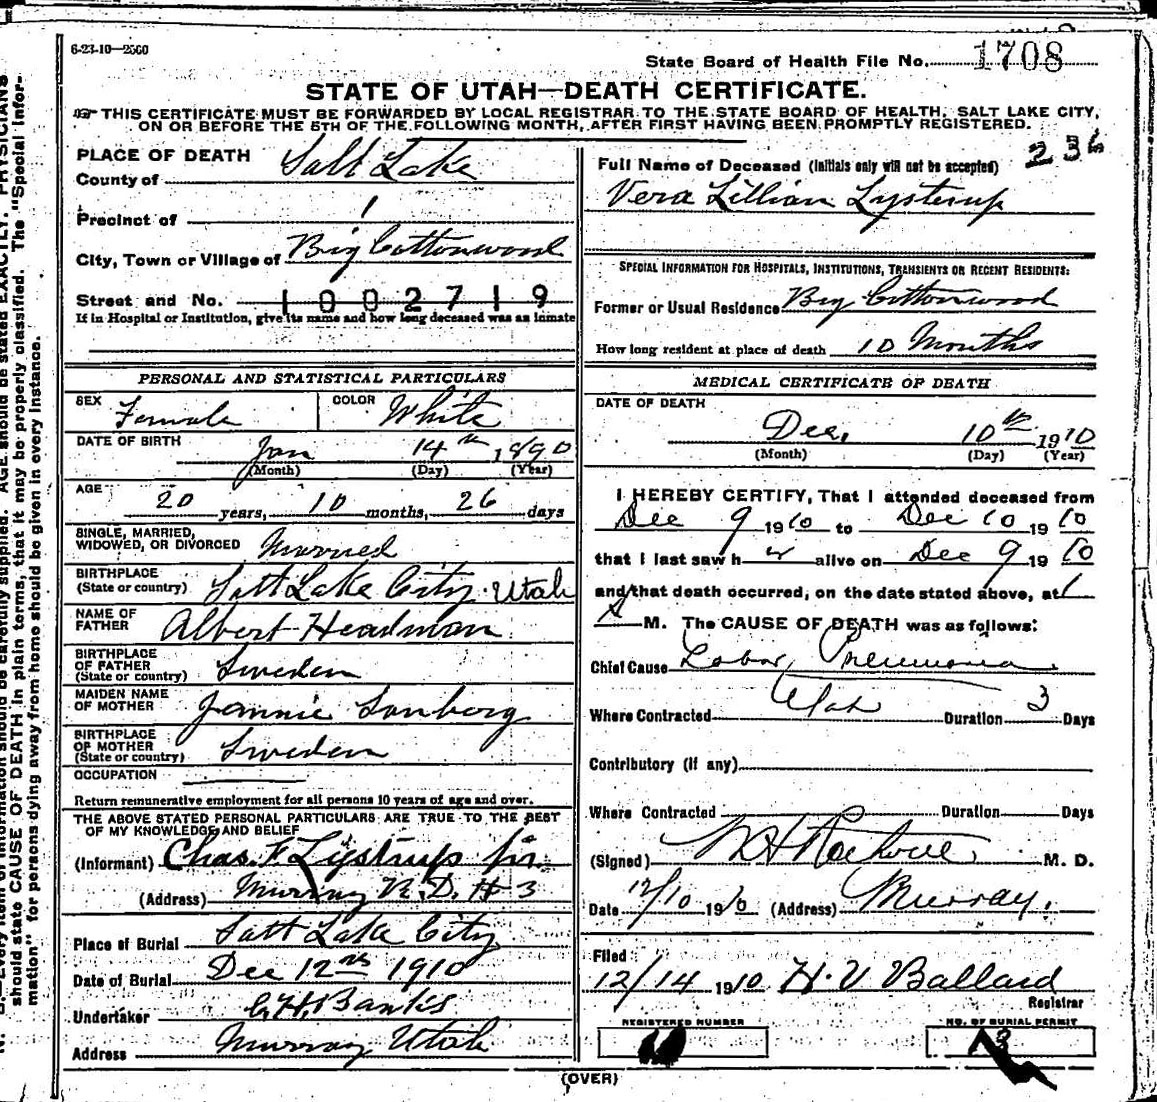 6-23-10—2500
State Board of Health File No. 1708
STATE OF UTAH—DEATH CERTIFICATE.
THIS CERTIFICATE MUST BE FORWARDED BY LOCAL REGISTRAR TO THE STATE BOARD OF HEALTH, SALT LAKE CITY,
ON OR BEFORE THE 5TH OF THE FOLLOWING MONTH, AFTER FIRST HAVING BEEN PROMPTLY REGISTERED.
236
PLACE OF DEATH
County of Salt Lake
Precinct of 1
City, Town or Village of Big Cottonwood
Street and No. 1002719
If in Hospital or Institution, give its name and how long deceased was an inmate
PERSONAL AND STATISTICAL PARTICULARS
SEX Female COLOR White
DATE OF BIRTH Jan 14th 1890
(Month) (Day) (Year)
AGE 20 years, 10 months, 26 days
SINGLE, MARRIED,
WIDOWED, OR DIVORCED Married
BIRTHPLACE
(State or country) Salt Lake City Utah
NAME OF
FATHER Albert Headman
BIRTHPLACE
OF FATHER
(State or country) Sweden
MAIDEN NAME
OF MOTHER Jennie Sanberg
BIRTHPLACE
OF MOTHER
(State or country) Sweden
OCCUPATION
Return remunerative employment for all persons 10 years of age and over.
THE ABOVE STATED PERSONAL PARTICULARS ARE TRUE TO THE BEST
OF MY KNOWLEDGE AND BELIEF
(Informant) Chas. F Lystrup jr.
(Address) Murray R.D. # 3
Place of Burial Salt Lake City
Date of Burial Dec 12 1910
Undertaker Banks
Address Murray Utah
Full Name of Deceased (Initials only will not be accepted)
Vera Lillian Lystrup
SPECIAL INFORMATION FOR HOSPITALS, INSTITUTIONS, TRANSIENTS OR RECENT RESIDENTS:
Former or Usual Residence Big Cottonwood
How long resident at place of death 10 Months
MEDICAL CERTIFICATE OF DEATH
DATE OF DEATH
Dec. 10th 1910
(Month) (Day) (Year)
I HEREBY CERTIFY, That I attended deceased from
Dec 9 1910 to Dec 10 1910
that I last saw her alive on Dec 9 1910
and that death occurred, on the date stated above, at 1
A M. The CAUSE OF DEATH was as follows:
Chief Cause Lobar Pneumonia.
Where Contracted Utah Duration 3 Days
Contributory (if any)
Where Contracted Duration Days
(Signed) M. D.
Date 12/10 1910 (Address) Murray.
Filed
12/14 1910 H. V Ballard
Registrar
REGISTERED NUMBER NO. OF BURIAL PERMIT
(OVER)
should state CAUSE OF DEATH in plain terms, that it may be properly classified. The "Special Infor-
mation" for persons dying away from home should be given in every instance.